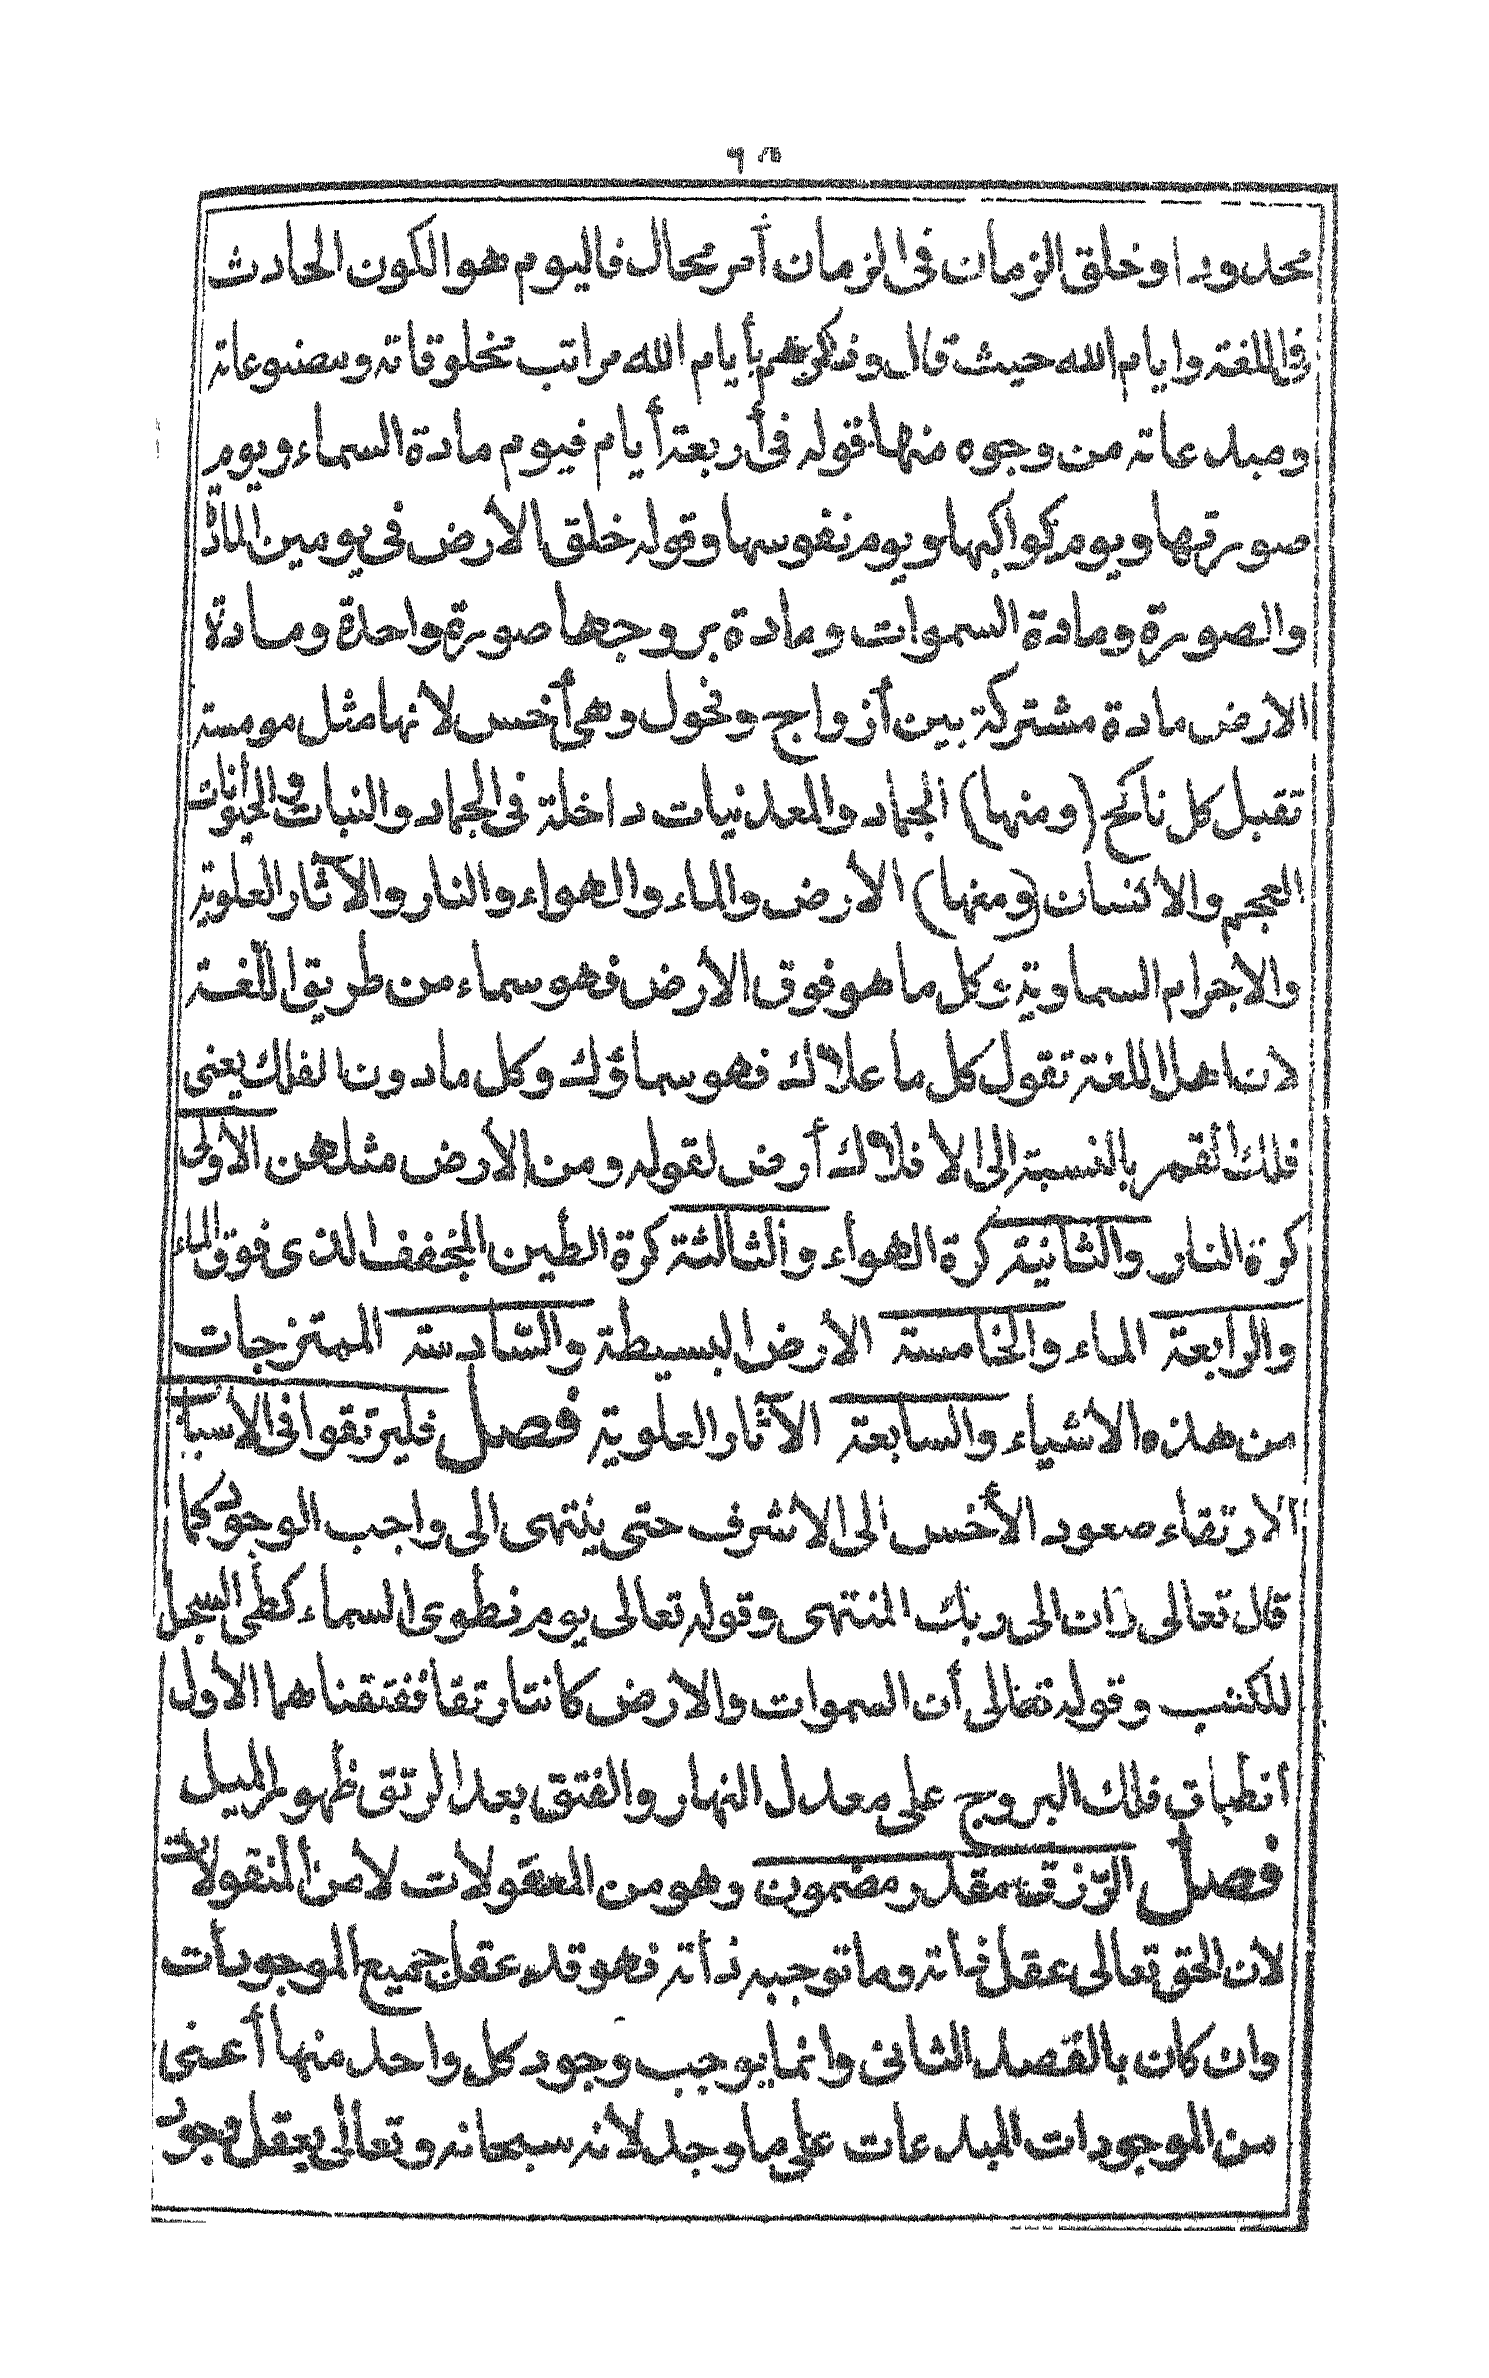 محدودا وخلق الزمان فى الزمان أمر محال فاليوم هو الكون الحادث
فى اللغة وايام الله حيث قال وذكرهم بأيام الله مراتب مخلوقاته ومصنوعاته
ومبدعاته من وجوه منها قوله فى أربعة أيام فيوم مادة السماء ويوم
صورتها ويوم كواكبها ويوم نفوسها وقوله خلق الأرض فى يومين المادة
والصورة ومادة السموات ومادة بروجها صورة واحدة ومادة
الارض مادة مشتركة بين أزواج وفحول وهى أخس لانها مثل مومسة
تقبل كل ناكح (ومنها) الجماد والمعدنيات داخلة فى الجماد والنبات والحيوانات
العجم والأنسان (ومنها) الأرض والماء والهواء والنار والآثار العلوية
والأجرام السماوية وكل ما هو فوق الأرض فهو سماء من طريق اللغة
لان اهل اللغة تقول كل ما علاك فهو سماؤك وكل ما دون الفلك يعنى
فلك القمر بالنسبة إلى الافلاك أرض لقوله ومن الأرض مثلهن الأولى
كرة النار والثانية كرة الهواء والثالثة كرة الطين المجفف الذى فوق الماء
والرابعة الماء والخامسة الأرض البسيطة والسّادسة الممتزجات
من هذه الأشياء والسابعة الآثار العلوية فصل فليرتقوا فى الأسباب
الارتقاء صعود الأخس الى الاشرف حتى ينتهى الى واجب الوجود كما
قال تعالى وان الى ربك المنتهى وقوله تعالى يوم نطوى السماء كطى السجل
للكتب وقوله تعالى أن السموات والارض كانتا رتقا ففتقناهما الأول
انطباق فلك البروج على معدل النهار والفتق بعد الرتق ظهور الميل
فصل الرّزق مقدر مضمون وهو من المعقولات لا من المنقولات
لأن الحق تعالى عقل ذاته وما توجبه ذاته فهو قد عقل جميع الموجودات
وان كان بالقصد الثانى وانما يوجب وجود كل واحد منها أعنى
من الموجودات المبدعات على ما وجد لانه سبحانه وتعالى يعقل وجود